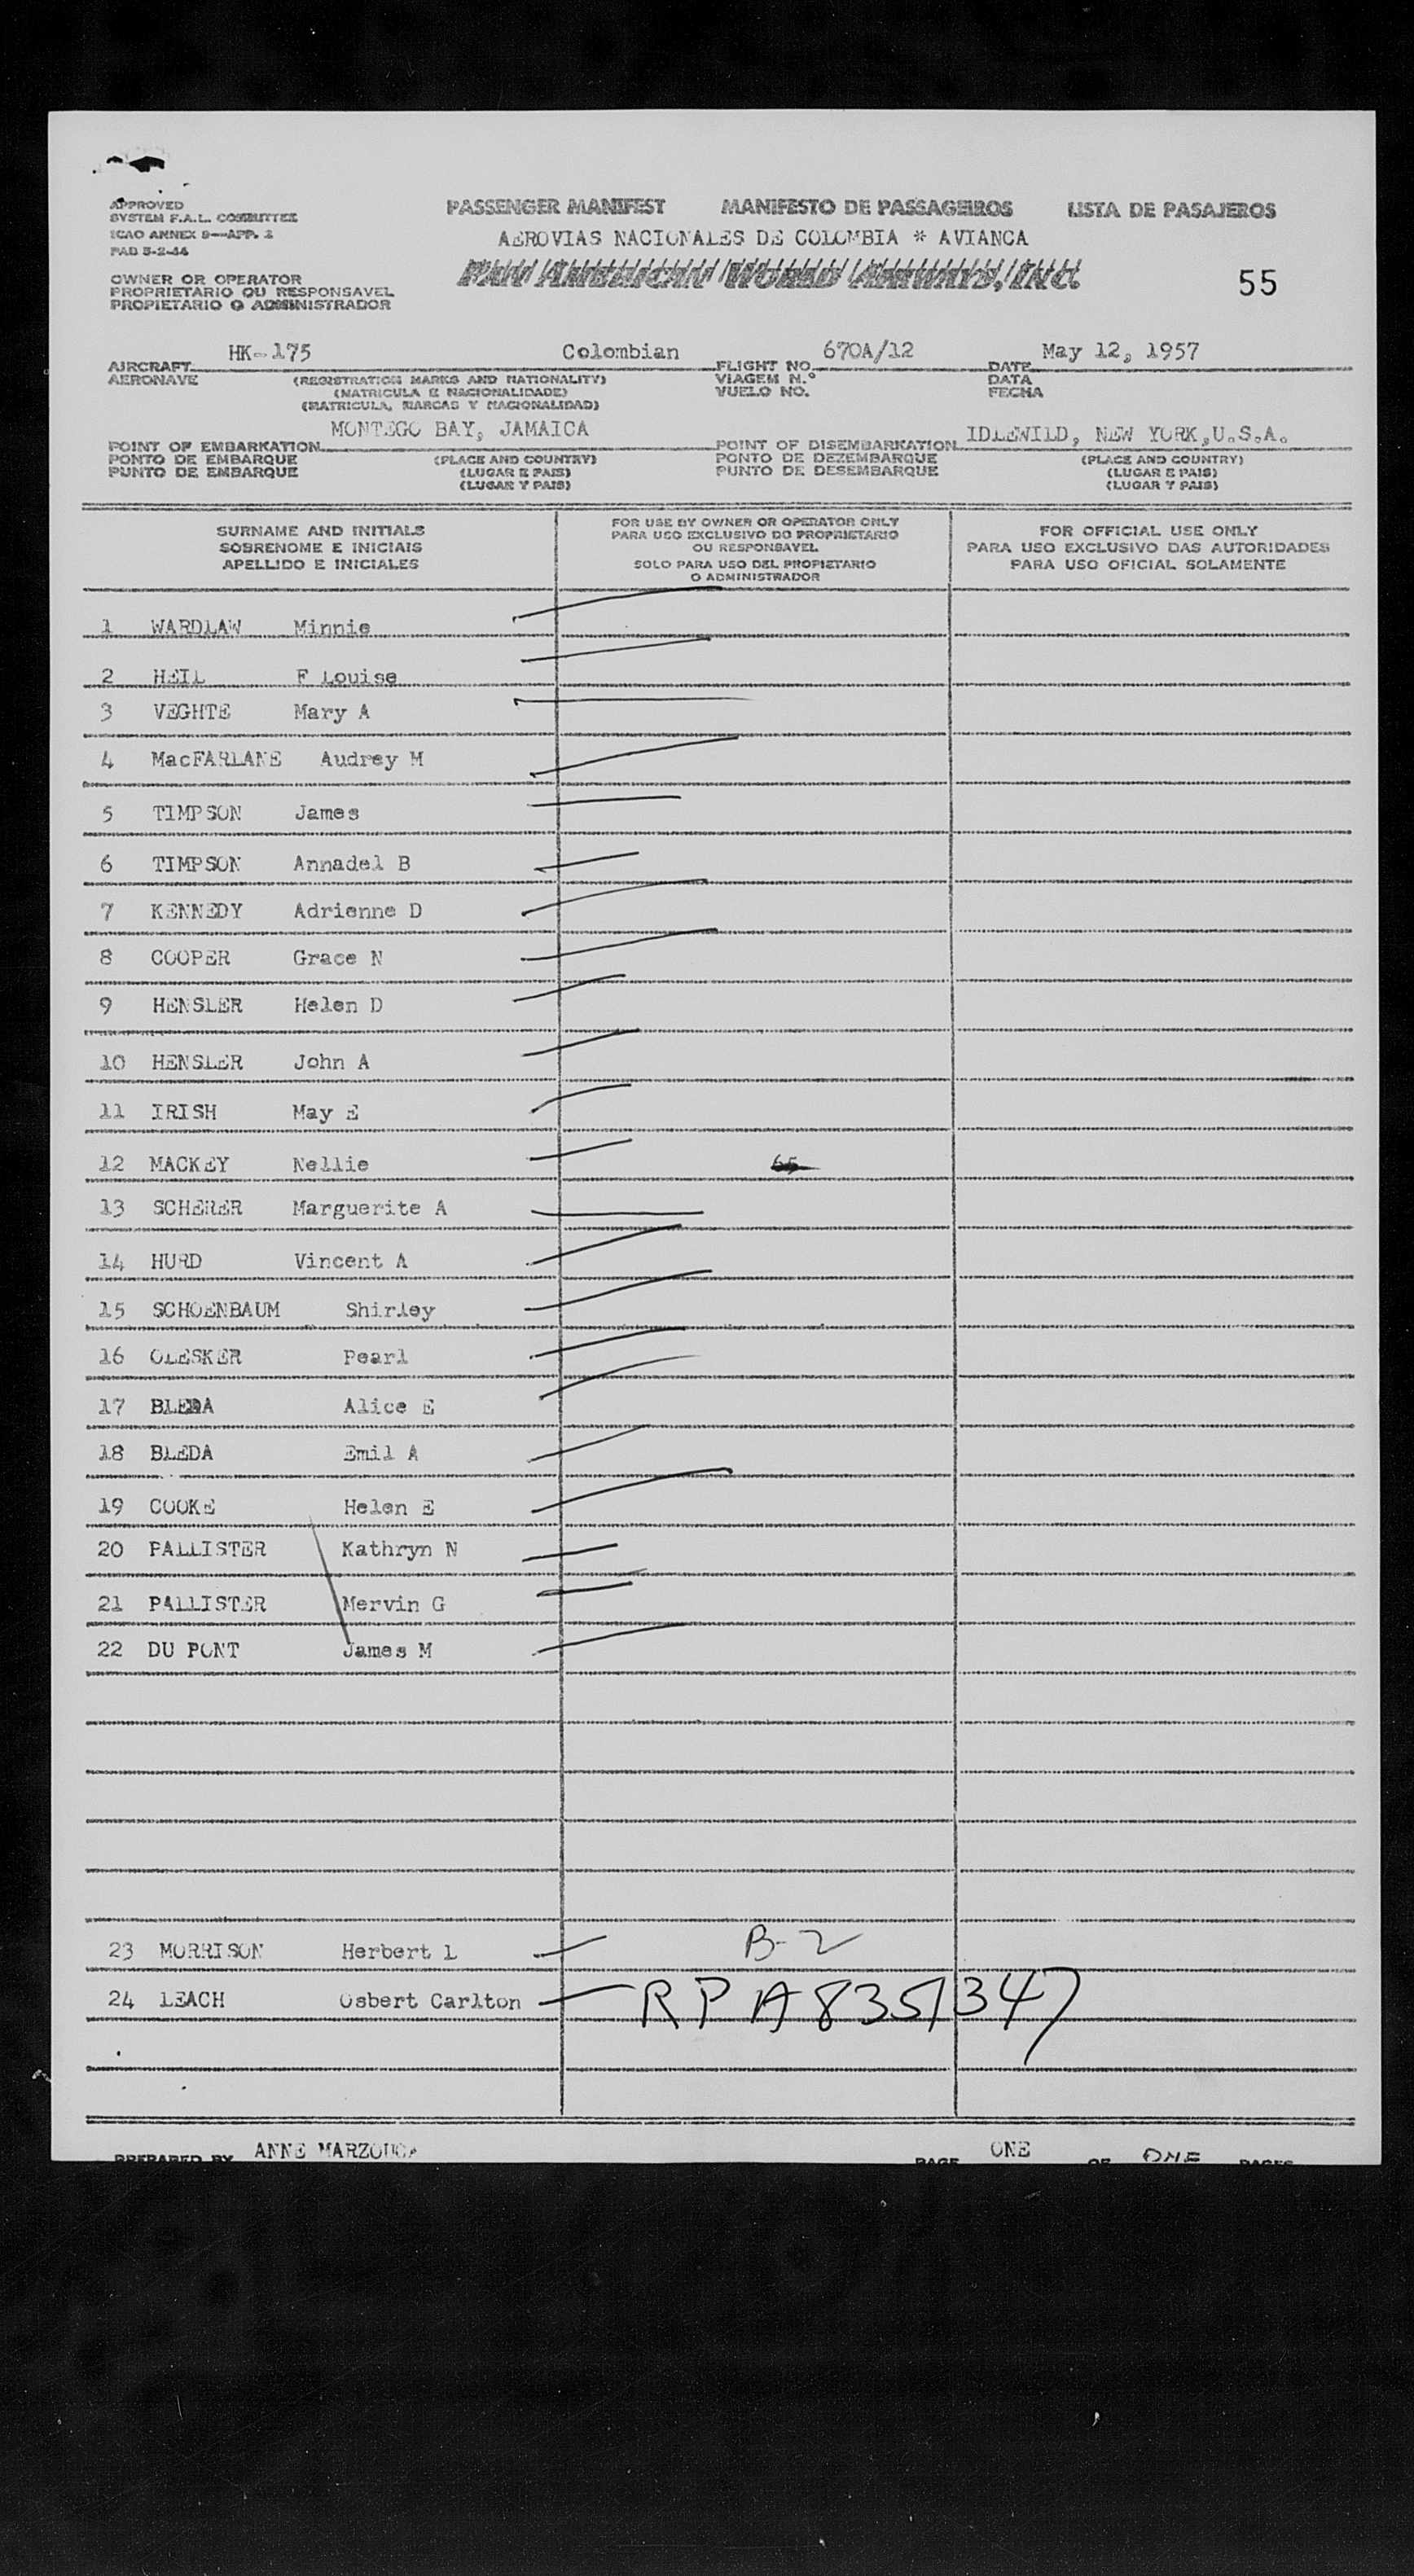 APPROVED
SYSTEM F.A.L. COMMITTEE
ICAO ANNEX 9—APP. 2
PAD 5-2-44
PASSENGER MANIFEST MANIFESTO DE PASSAGEIROS LISTA DE PASAJEROS
AEROVIAS NACIONALES DE COLOMBIA * AVIANCA
PAN AMERICAN WORLD AIRWAYS, INC.
55
OWNER OR OPERATOR
PROPRIETARIO OU RESPONSAVEL
PROPIETARIO O ADMINISTRADOR
AIRCRAFT HK-175 Colombian FLIGHT NO. 670A/12 DATE May 12, 1957
AERONAVE (REGISTRATION MARKS AND NATIONALITY) VIAGEM N.º DATA
(MATRICULA E NACIONALIDADE) VUELO NO. FECHA
(MATRICULA, MARCAS Y NACIONALIDAD)
POINT OF EMBARKATION MONTEGO BAY, JAMAICA POINT OF DISEMBARKATION IDLEWILD, NEW YORK,U.S.A.
PONTO DE EMBARQUE (PLACE AND COUNTRY) PONTO DE DEZEMBARQUE (PLACE AND COUNTRY)
PUNTO DE EMBARQUE (LUGAR E PAIS) PUNTO DE DESEMBARQUE (LUGAR E PAIS)
(LUGAR Y PAIS) (LUGAR Y PAIS)
SURNAME AND INITIALS
SOBRENOME E INICIAIS
APELLIDO E INICIALES
FOR USE BY OWNER OR OPERATOR ONLY
PARA USO EXCLUSIVO DO PROPRIETARIO
OU RESPONSAVEL
SOLO PARA USO DEL PROPIETARIO
O ADMINISTRADOR
FOR OFFICIAL USE ONLY
PARA USO EXCLUSIVO DAS AUTORIDADES
PARA USO OFICIAL SOLAMENTE
1 WARDLAW Minnie
2 HEIL F Louise
3 VEGHTE Mary A
4 MacFARLANE Audrey M
5 TIMPSON James
6 TIMPSON Annadel B
7 KENNEDY Adrienne D
8 COOPER Grace N
9 HENSLER Helen D
10 HENSLER John A
11 IRISH May E
12 MACKEY Nellie 65
13 SCHERER Marguerite A
14 HURD Vincent A
15 SCHOENBAUM Shirley
16 OLESKER Pearl
17 BLEDA Alice E
18 BLEDA Emil A
19 COOKE Helen E
20 PALLISTER Kathryn N
21 PALLISTER Mervin G
22 DU PONT James M
23 MORRISON Herbert L B-2
24 LEACH Osbert Carlton RP A8351347
PREPARED BY ANNE MARZOUCA PAGE ONE OF ONE PAGES